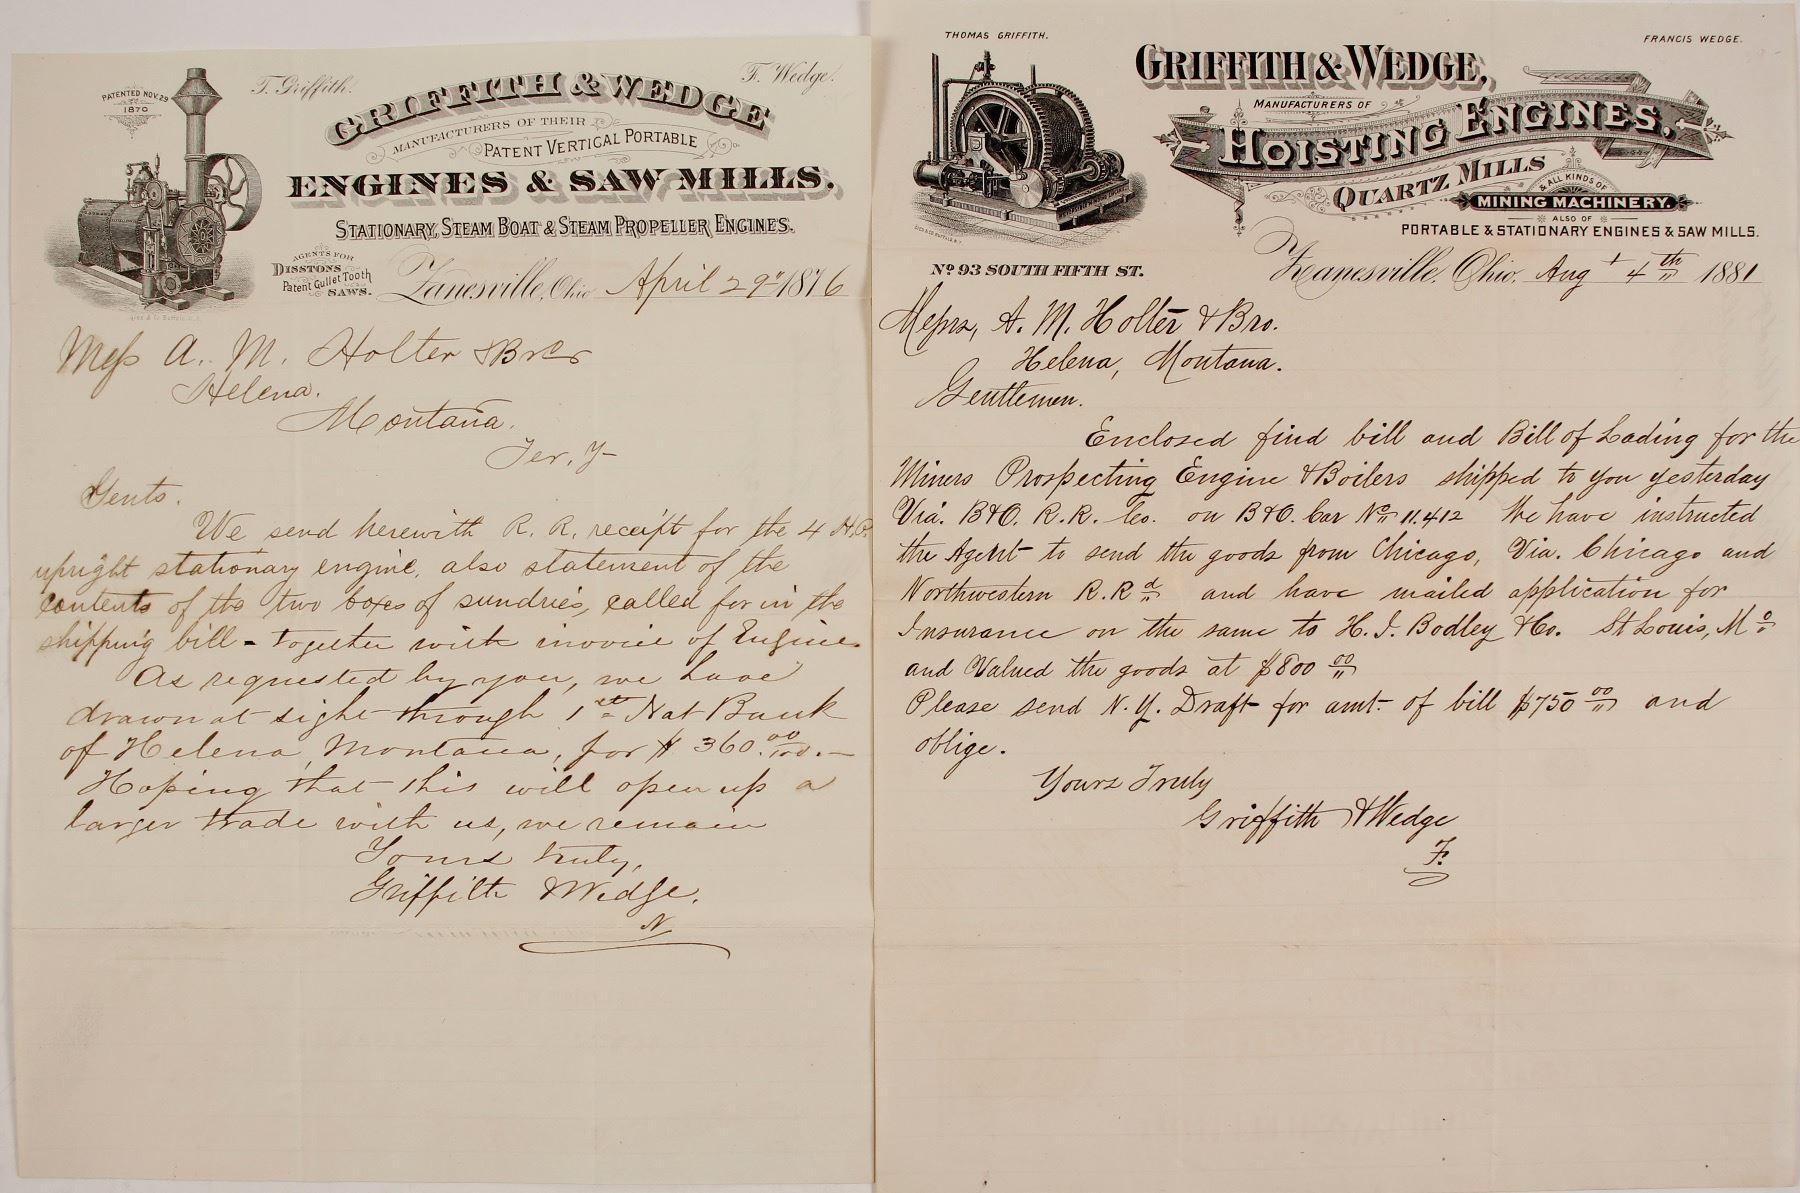 PATENTED NOV. 29
1870
T. Griffith.
F. Wedge.
GRIFFITH & WEDGE
MANUFACTURERS OF THEIR
PATENT VERTICAL PORTABLE
ENGINES & SAW MILLS.
STATIONARY, STEAM BOAT & STEAM PROPELLER ENGINES.
AGENTS FOR
DISSTONS
Patent Gullet Tooth
SAWS.
Zanesville, Ohio April 29" 1876
Mess A. M. Holter & Bro
Helena.
Montana.
Ter. y
Gents.
We send herewith R. R. receipt for the 4 H.P.
upright stationary engine, also statement of the
contents of the two boxes of sundries, called for in the
shipping bill - together with invoice of Engine
As requested by you, we have
drawn at sight through 1st Nat Bank
of Helena, Montana, for $360.00/100. —
Hoping that this will open up a
larger trade with us, we remain
Yours truly,
Griffith & Wedge.
N
THOMAS GRIFFITH.
FRANCIS WEDGE.
GRIFFITH & WEDGE,
MANUFACTURERS OF
HOISTING ENGINES,
QUARTZ MILLS
& ALL KINDS OF
MINING MACHINERY.
ALSO OF
PORTABLE & STATIONARY ENGINES & SAW MILLS.
No 93 SOUTH FIFTH ST.
Zanesville, Ohio, Aug 4th 1881
Messrs, A. M. Holter & Bro.
Helena, Montana.
Gentlemen.
Enclosed find bill and Bill of Lading for the
Miners Prospecting Engine & Boilers shipped to you yesterday
Via. B&O. R.R. Co. on B&O. Car No 11.412 We have instructed
the Agent to send the goods from Chicago, Via. Chicago and
Northwestern R.Rd and have mailed application for
Insurance on the same to H. J. Bodley & Co. St Louis, Mo
and Valued the goods at $800 00
Please send N. Y. Draft for amt. of bill $750 00 and
oblige.
Yours Truly
Griffith & Wedge
F.